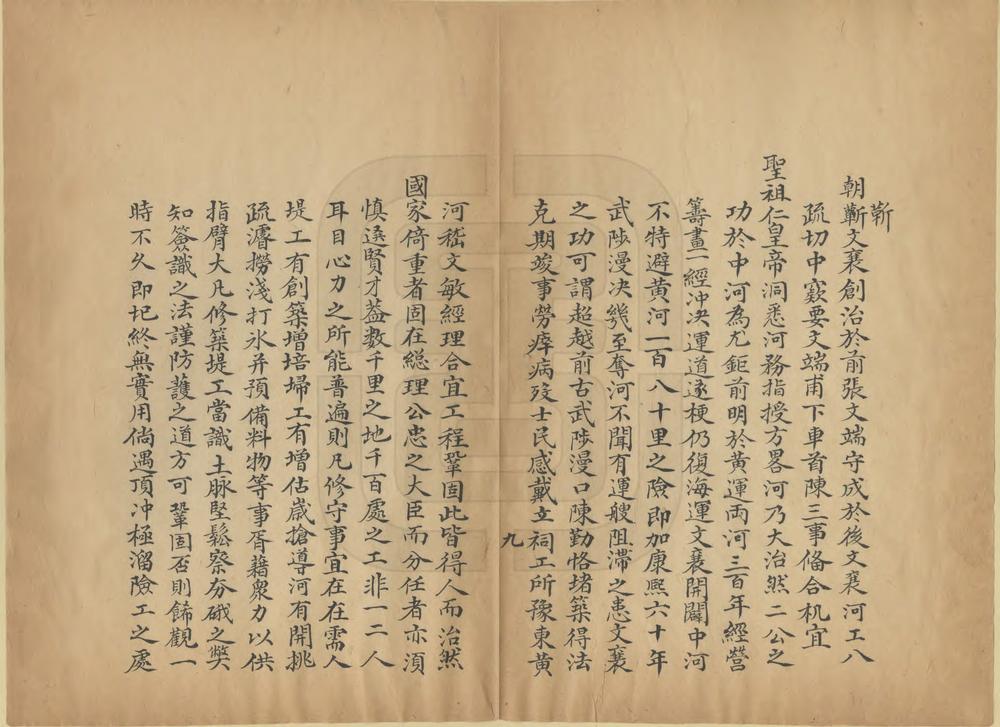 朝靳文襄創治於前張文端守成於後文襄河工八
靳
疏切中窾要文端甫下車首陳三事俻合机宜
聖祖仁皇帝洞悉河務指授方畧河乃大治然二公之
功於中河為尤鉅前明於黄運両河三百年經營
籌畫一經冲决運道遂梗仍復海運文襄開闢中河
不特避黄河一百八十里之險即如康熈六十年
武陟漫决幾至奪河不聞有運艘阻滞之患文襄
之功可謂超越前古武陟漫口陳勤恪堵築得法
克期竣事勞瘁病歿士民感戴立祠工所豫東黄
九
河嵇文敏經理合宜工程鞏固此皆得人而治然
國家倚重者固在総理公忠之大臣而分任者亦湏
慎選賢才葢数千里之地千百處之工非一二人
耳目心力之所能普遍則凡修守事宜在在需人
堤工有創築增培埽工有增估嵗搶導河有開挑
疏濬撈淺打氷并預備料物等事胥藉衆力以供
指臂大凡修築堤工當識土脉堅鬆察夯硪之獘
知簽試之法謹防護之道方可鞏固否則餙觀一
時不久即圮終無實用倘遇頂冲極溜險工之處